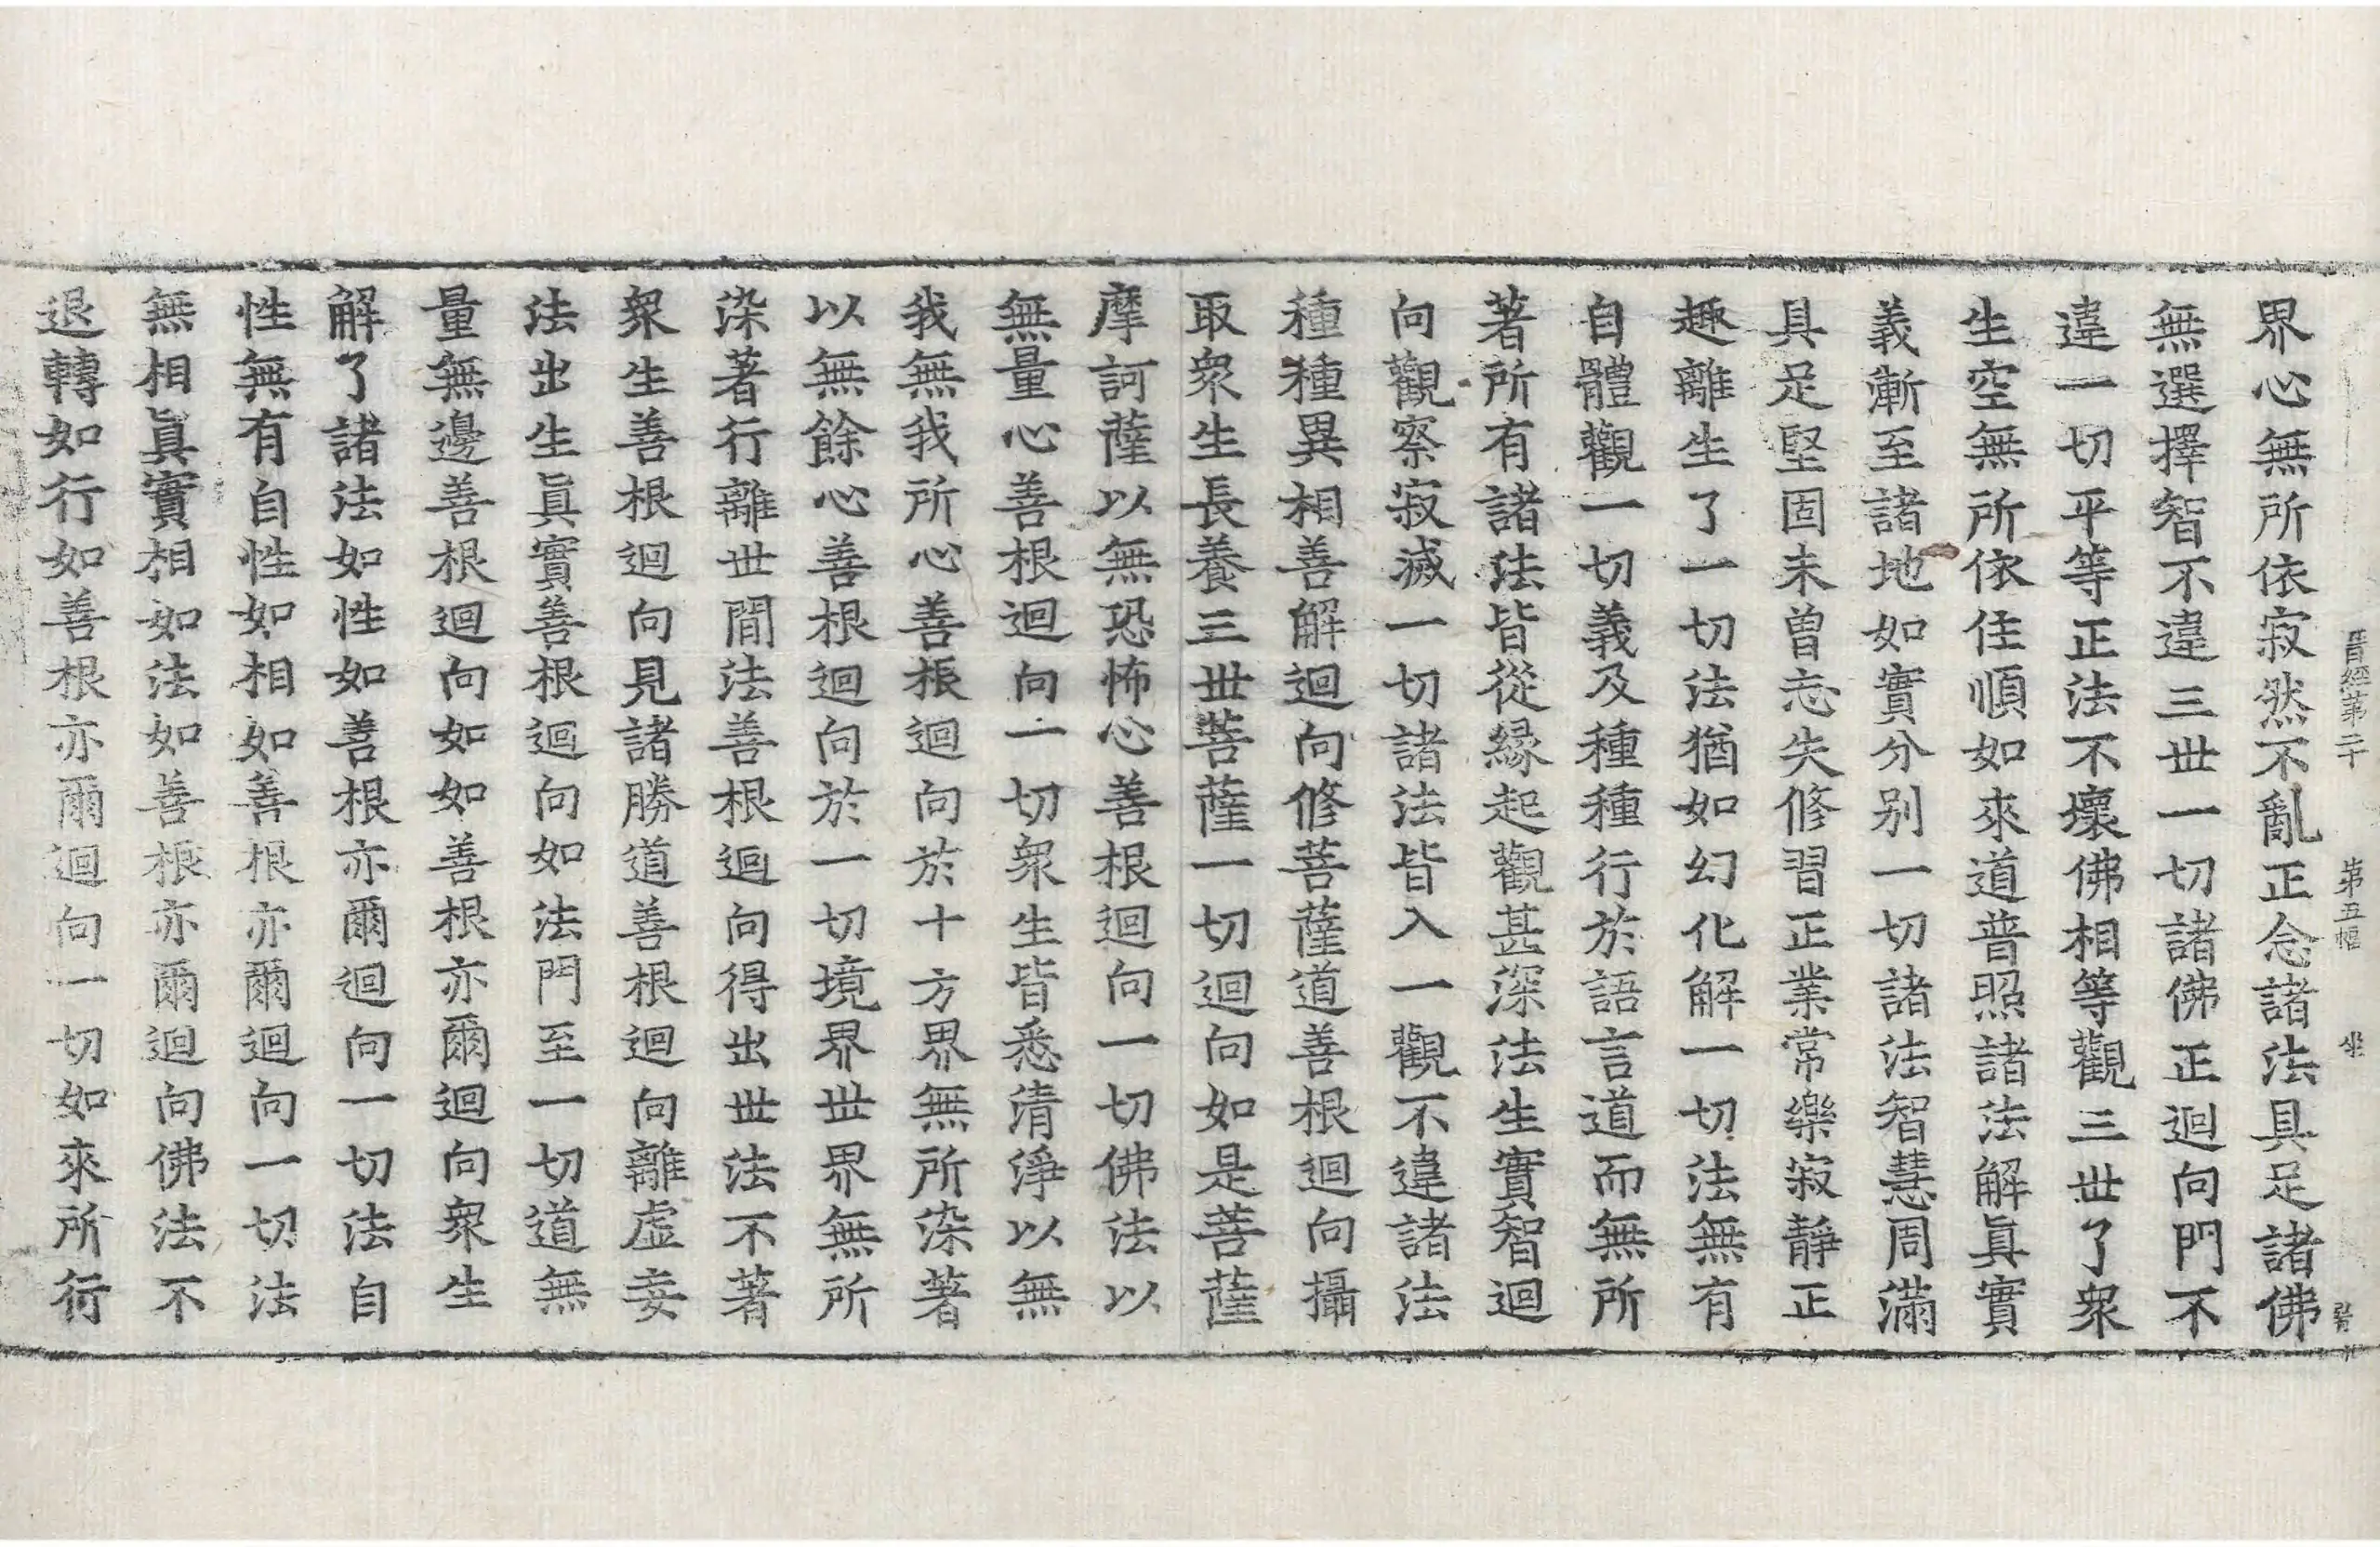 晋經第二十 第五幅 坐
界心無所依寂然不亂正念諸法具足諸佛
無選擇智不違三世一切諸佛正迴向門不
違一切平等正法不壞佛相等觀三世了衆
生空無所依住順如來道普照諸法解眞實
義漸至諸地如實分别一切諸法智慧周滿
具足堅固未曾忘失修習正業常樂寂靜正
趣離生了一切法猶如幻化解一切法無有
自體觀一切義及種種行於語言道而無所
著所有諸法皆從緣起觀甚深法生實智迴
向觀察寂滅一切諸法皆入一觀不違諸法
種種異相善解迴向修菩薩道善根迴向攝
取衆生長養三世菩薩一切迴向如是菩薩
摩訶薩以無恐怖心善根迴向一切佛法以
無量心善根迴向一切衆生皆悉清淨以無
我無我所心善根迴向於十方界無所染著
以無餘心善根迴向於一切境界世界無所
染著行離世間法善根迴向得出世法不著
衆生善根迴向見諸勝道善根迴向離虛妄
法出生眞實善根迴向如法門至一切道無
量無邊善根迴向如如善根亦爾迴向衆生
解了諸法如性如善根亦爾迴向一切法自
性無有自性如相如善根亦爾迴向一切法
無相眞實相如法如善根亦爾迴向佛法不
退轉如行如善根亦爾迴向一切如來所行